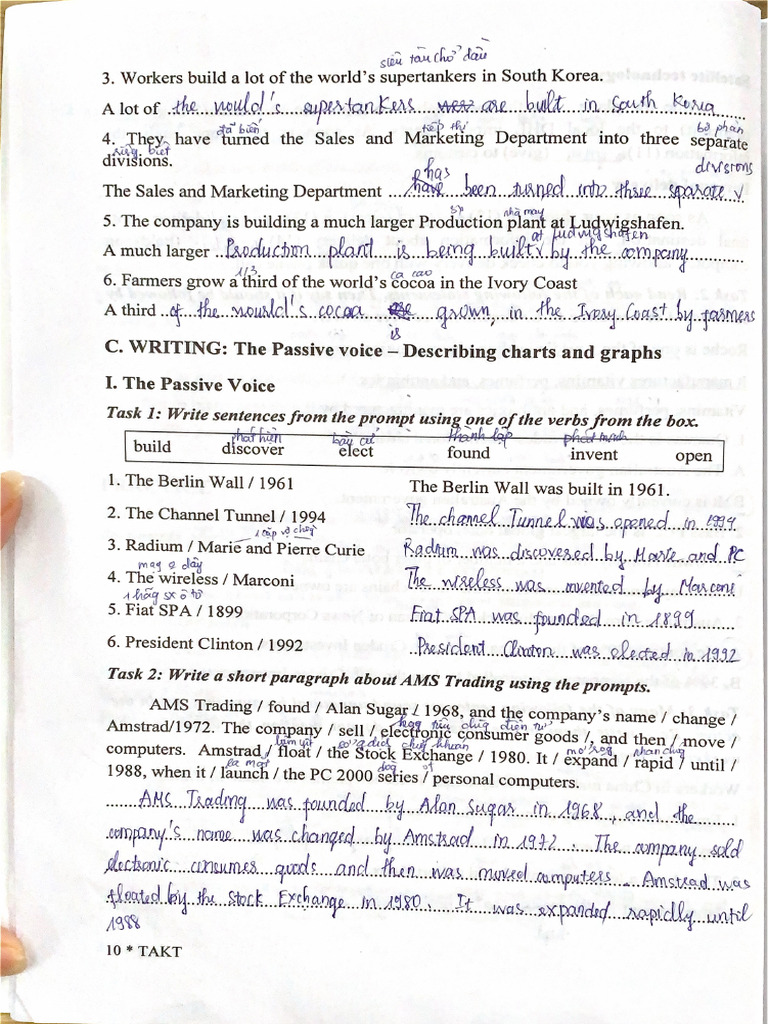 siêu tàu chở dầu
3. Workers build a lot of the world's supertankers in South Korea.
A lot of the would's supertankers are built in South Koria
đã biến tiếp thị bộ phận
4. They have turned the Sales and Marketing Department into three separate
riêng biệt
divisions.
has divisions
The Sales and Marketing Department have been turned into three sparate
sp nhà máy
5. The company is building a much larger Production plant at Ludwigshafen.
at ludwigshafen
A much larger Production plant is being built by the company
1/3 ca cao
6. Farmers grow a third of the world's cocoa in the Ivory Coast
A third of the would's cocoa grown in the Ivory Coast by farmers
is
C. WRITING: The Passive voice – Describing charts and graphs
I. The Passive Voice
Task 1: Write sentences from the prompt using one of the verbs from the box.
phát hiện bầu cử thành lập phát minh
build discover elect found invent open
1. The Berlin Wall / 1961 The Berlin Wall was built in 1961.
2. The Channel Tunnel / 1994 The channel Tunnel was opened in 1994
1 cặp vợ chồng
3. Radium / Marie and Pierre Curie Radium was discovered by Marie and PC
mạng ko dây
4. The wireless / Marconi The wireless was invented by Marconi
1 hãng sx ô tô
5. Fiat SPA / 1899 Fiat SPA was founded in 1899
6. President Clinton / 1992 President Clinton was elected in 1992
Task 2: Write a short paragraph about AMS Trading using the prompts.
AMS Trading / found / Alan Sugar / 1968, and the company's name / change /
Amstrad/1972. The company / sell / electronic consumer goods /, and then / move /
computers. Amstrad / float / the Stock Exchange / 1980. It / expand / rapid / until /
1988, when it / launch / the PC 2000 series / personal computers.
AMS Trading was founded by Alan Sugar in 1968, and the
company's name was changed by Amstrad in 1972. The company sold
electronic consumer goods and then was moved computers. Amstead was
floated by the Stock Exchange in 1980. It was expanded rapidly until
1988
10 * TAKT